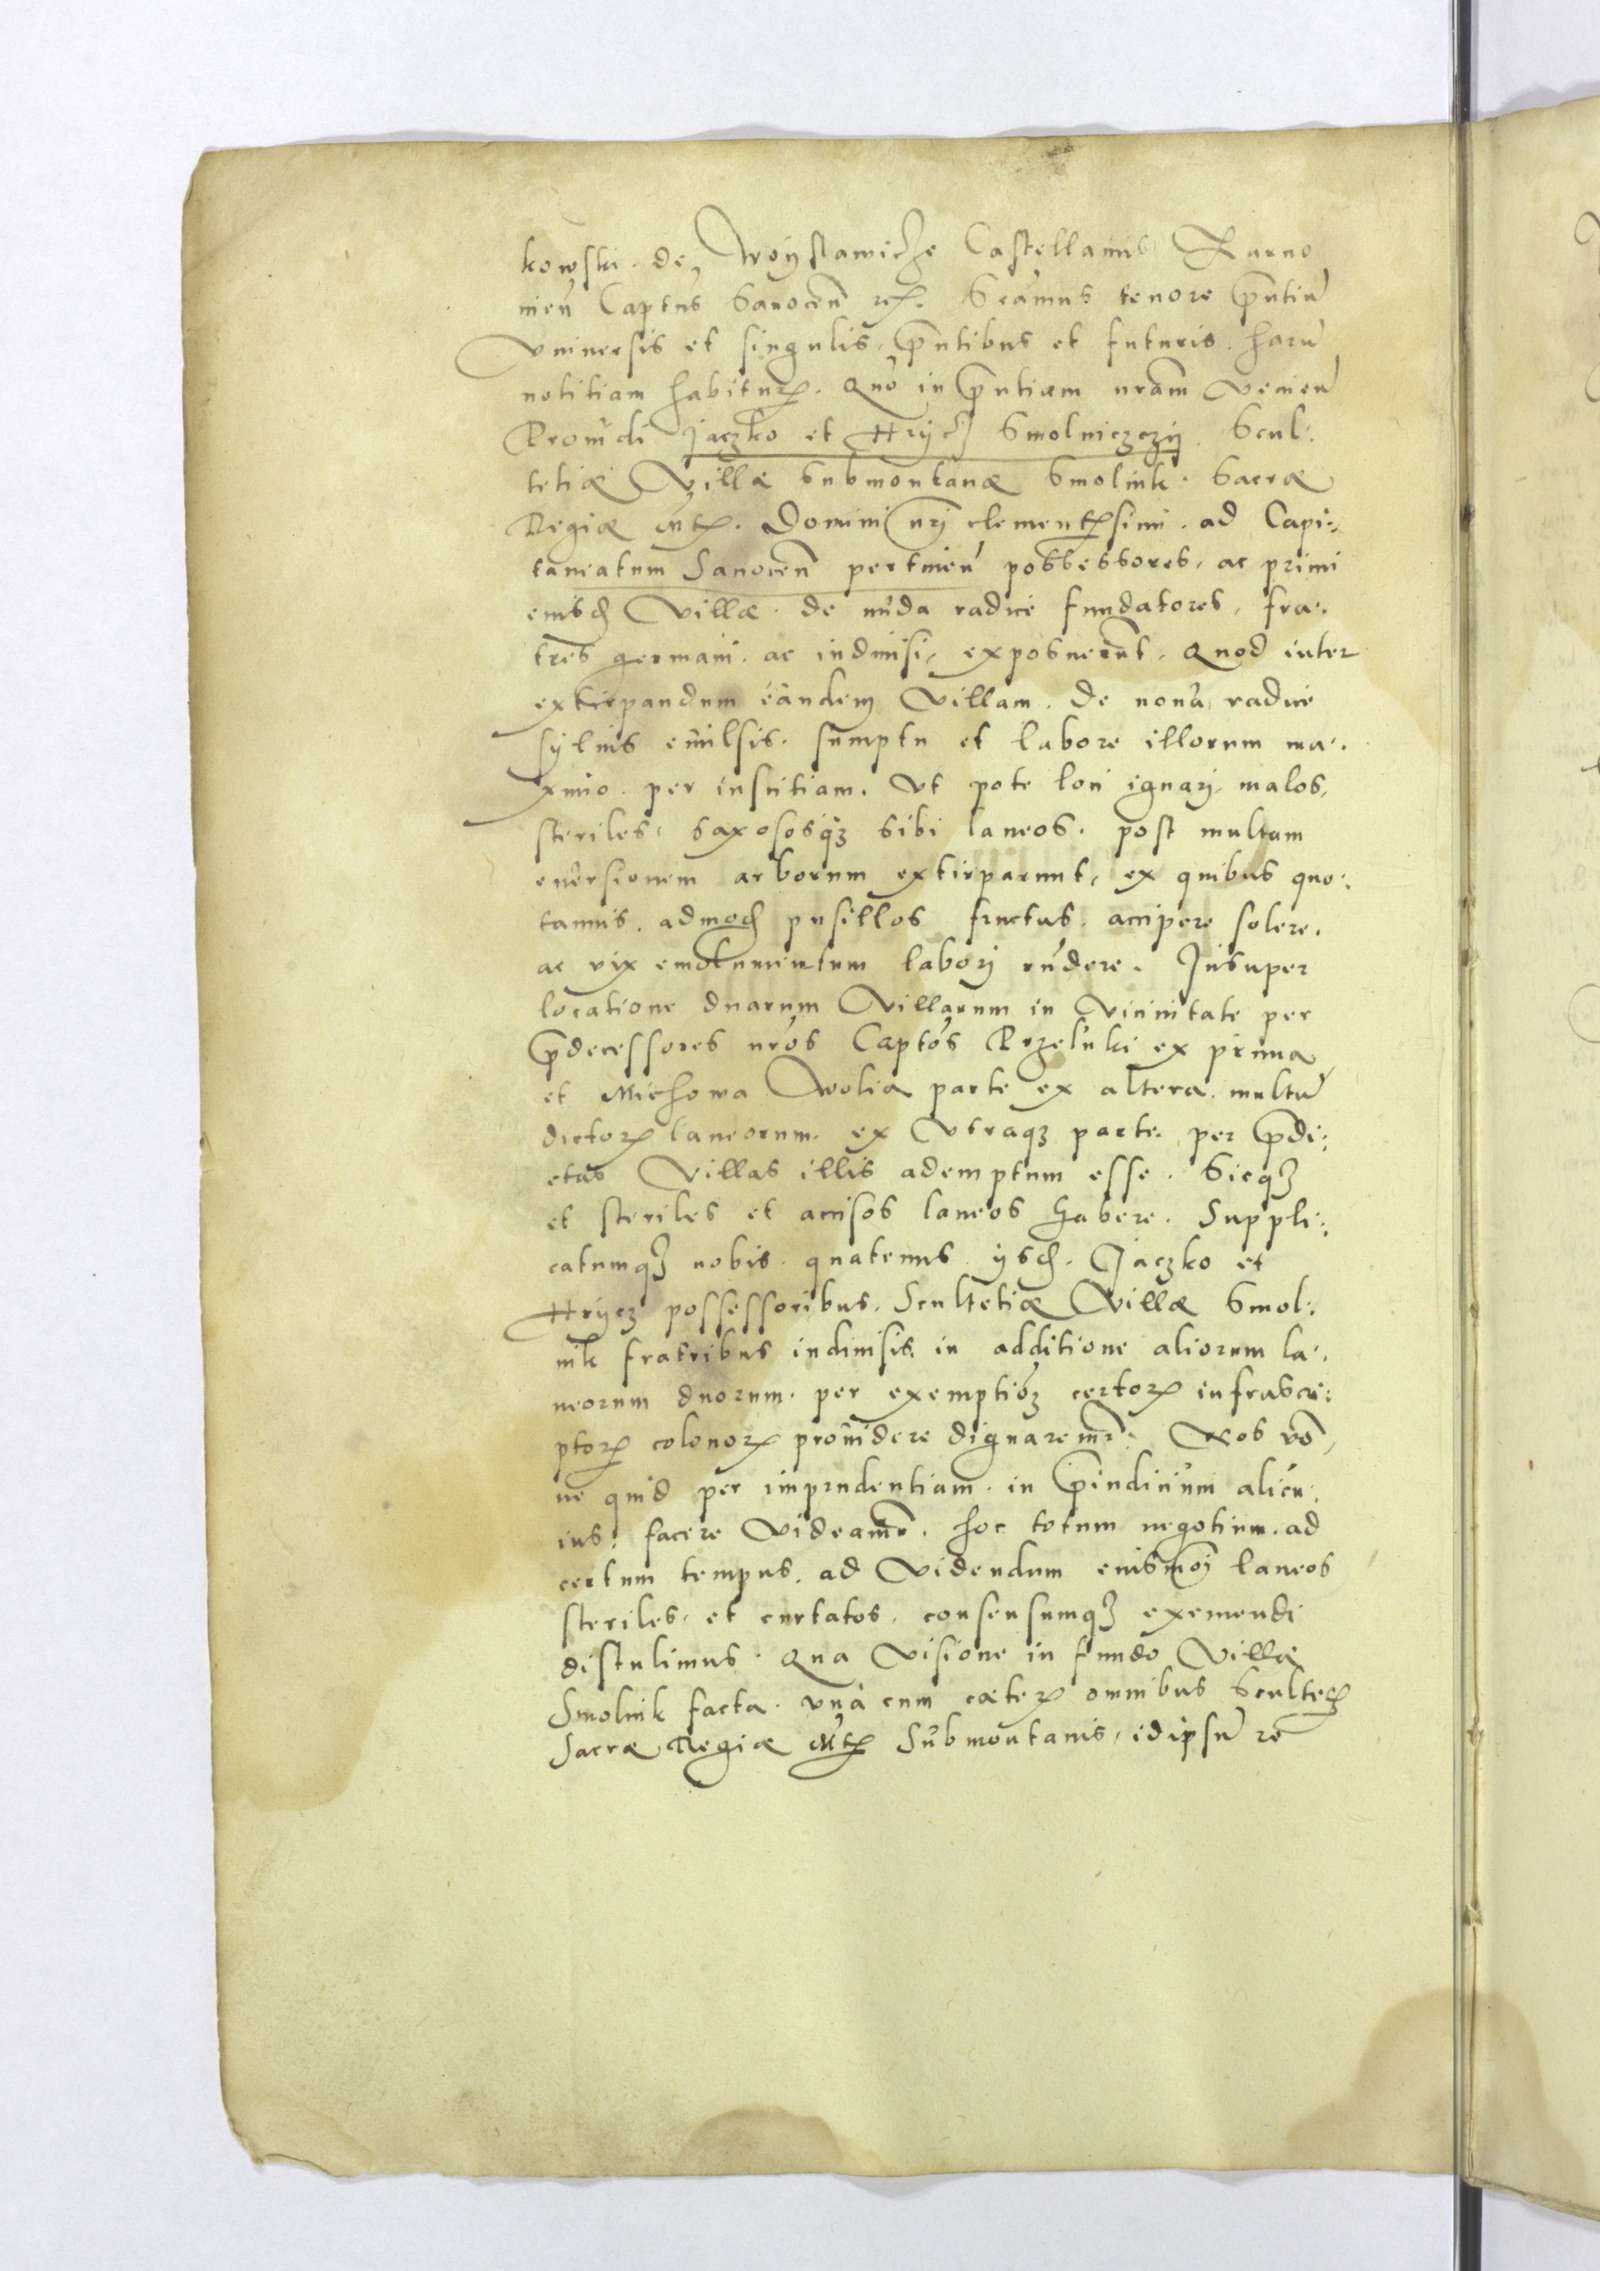 kowski. de Woyslawicze Castellanus Rarno
men̄ Captus̄ Sanocen̄ etc. Scimus̄ tenore p̄ntiū
Vniuersis et singulis, p̄ntibus et futuris. harū
notitiam habitur. Quō in p̄ntiam nr̄am venien̄
Prouidi Jaczko et Hrycz Smolniczczy. Scul:
tetiæ Villæ Submontanæ Smolnik. Sacræ
Regiæ Mt̄. Domini nr̄i clementssimi. ad Capi:
taneatum Sanocen̄ pertinen̄ possessores, ac primi
eiusd Villæ. de nuda radice fundatores, fra:
tres germani. ac indiuisi, exposuerunt. Quod inter
extirpandum eandem Villam. de noua radice
syluis euulsis. sumptu et labore illorum ma:
ximo. per inscitiam. Vt pote loci ignari, malos,
steriles, saxososq̢ sibi laneos. post multam
euersionem arborum extirparunt, ex quibus quo:
tannis. admod pusillos fructus. accipere solere.
ac vix emolumentum labori rūdere. Insuper
locatione duarum Villarum in Vicinitate per
p̄decessores nr̄os Captōs Rzeluki ex prima
et Michowa Wolia parte ex altera. multū
dictor laneorum. ex Vtraq̢ parte. per p̄di:
ctas Villas illis ademptum esse. Sicq̢
et steriles et accisos laneos habere. Suppli:
catumq̢ nobis. quatenus ysd. Jaczko et
Hrycz possessoribus. Scultetiæ Villæ Smol:
nik fratribus indiuisis in additione aliorum la:
neorum duorum. per exemptiōē certor infrascri:
ptor colonor prouidere dignaremr̄. Nos vō,
ne quid per imprudentiam. in p̄iudicium alicu:
ius: facere Videamr̄. hoc totum negotium. ad
certum tempus. ad Videndum eiusmōi laneos
steriles, et curtatos, consensumq̢ exemendi
distulimus. Qua Visione in fundo Villæ
Smolnik facta. vnà cum cæter omnibus Scultet
Sacræ Regiæ Mt̄ Submontanis, idipsū re